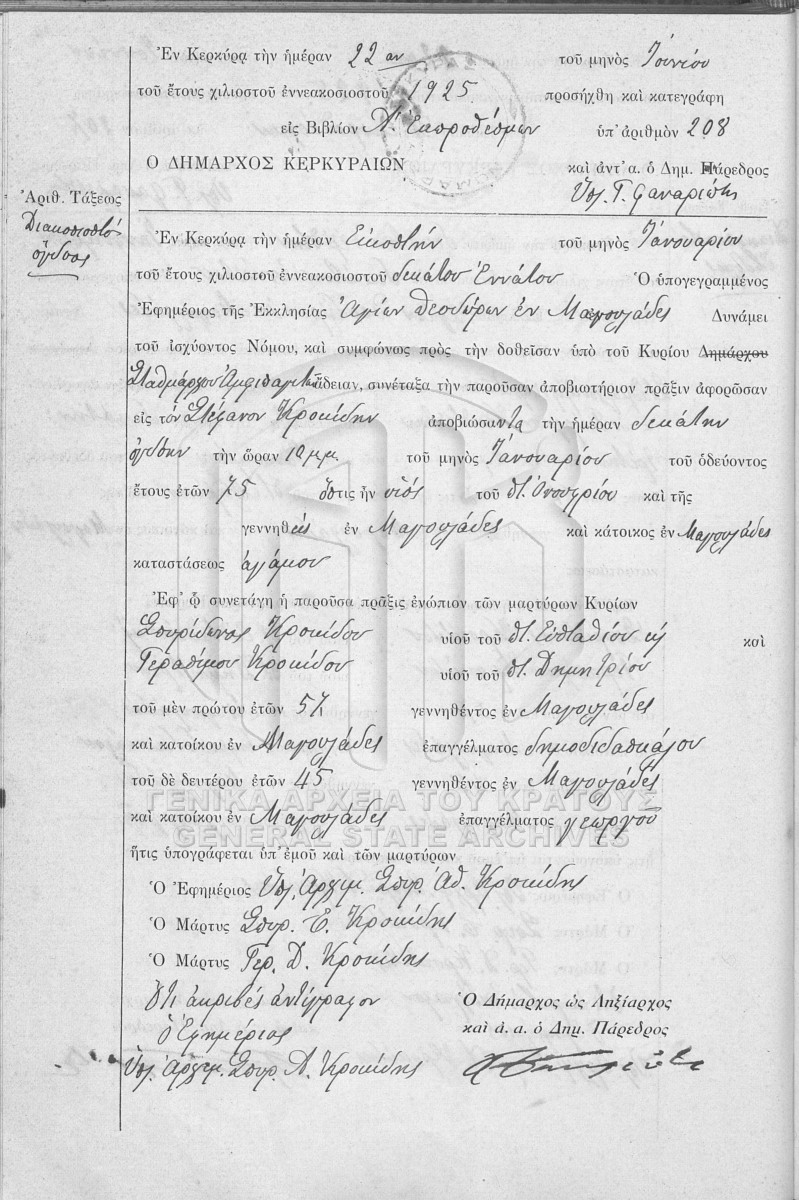 Ἐν Κερκύρᾳ τὴν ἡμέραν 22αν τοῦ μηνὸς Ἰουνίου
τοῦ ἔτους χιλιοστοῦ ἐννεακοσιοστοῦ 1925 προσήχθη καὶ κατεγράφη
εἰς Βιβλίον Α' Ἐκπροθέσμων ὑπ' ἀριθμὸν 208
Ο ΔΗΜΑΡΧΟΣ ΚΕΡΚΥΡΑΙΩΝ καὶ ἀντ' α. ὁ Δημ. Πάρεδρος
Ὑπ. Γ. Φαναριώτης
Ἀριθ. Τάξεως
Διακοσιοστὸς
ὄγδοος
Ἐν Κερκύρᾳ τὴν ἡμέραν Εἰκοστήν τοῦ μηνὸς Ἰανουαρίου
τοῦ ἔτους χιλιοστοῦ ἐννεακοσιοστοῦ δεκάτου ἐννάτου Ὁ ὑπογεγραμμένος
Ἐφημέριος τῆς Ἐκκλησίας Ἁγίων Θεοδώρων ἐν Μαγουλάδες Δυνάμει
τοῦ ἰσχύοντος Νόμου, καὶ συμφώνως πρὸς τὴν δοθεῖσαν ὑπὸ τοῦ Κυρίου Δημάρχου
Σταθμάρχου ἄδειαν, συνέταξα τὴν παροῦσαν ἀποβιωτήριον πρᾶξιν ἀφορῶσαν
εἰς τὸν Στέφανον Κροκίδην ἀποβιώσαντα τὴν ἡμέραν δεκάτην
ὀγδόην τὴν ὥραν 10 μμ. τοῦ μηνὸς Ἰανουαρίου τοῦ ὁδεύοντος
ἔτους ἐτῶν 75 ὅστις ἦν υἱός τοῦ ποτ. Ὀνουφρίου καὶ τῆς
γεννηθείς ἐν Μαγουλάδες καὶ κάτοικος ἐν Μαγουλάδες
καταστάσεως ἀγάμου
Ἐφ' ᾧ συνετάγη ἡ παροῦσα πρᾶξις ἐνώπιον τῶν μαρτύρων Κυρίων
Σπυρίδωνος Κροκίδου υἱοῦ τοῦ ποτ. Εὐσταθίου καὶ
Γερασίμου Κροκίδου υἱοῦ τοῦ ποτ. Δημητρίου
τοῦ μὲν πρώτου ἐτῶν 57 γεννηθέντος ἐν Μαγουλάδες
καὶ κατοίκου ἐν Μαγουλάδες ἐπαγγέλματος δημοδιδασκάλου
τοῦ δὲ δευτέρου ἐτῶν 45 γεννηθέντος ἐν Μαγουλάδες
ΓΕΝΙΚΑ ΑΡΧΕΙΑ ΤΟΥ ΚΡΑΤΟΥΣ
καὶ κατοίκου ἐν Μαγουλάδες ἐπαγγέλματος γεωργοῦ
GENERAL STATE ARCHIVES
ἥτις ὑπογράφεται ὑπ' ἐμοῦ καὶ τῶν μαρτύρων
Ὁ Ἐφημέριος Ὑπ. Ἀρχιμ. Σπυρ. Ἀθ. Κροκίδης
Ὁ Μάρτυς Σπυρ. Ε. Κροκίδης
Ὁ Μάρτυς Γερ. Δ. Κροκίδης
Ὅτι ἀκριβὲς ἀντίγραφον Ὁ Δήμαρχος ὡς Ληξίαρχος
ὁ Ἐφημέριος καὶ ἀ. ἀ. ὁ Δημ. Πάρεδρος
Ὑπ. Ἀρχιμ. Σπυρ. Α. Κροκίδης